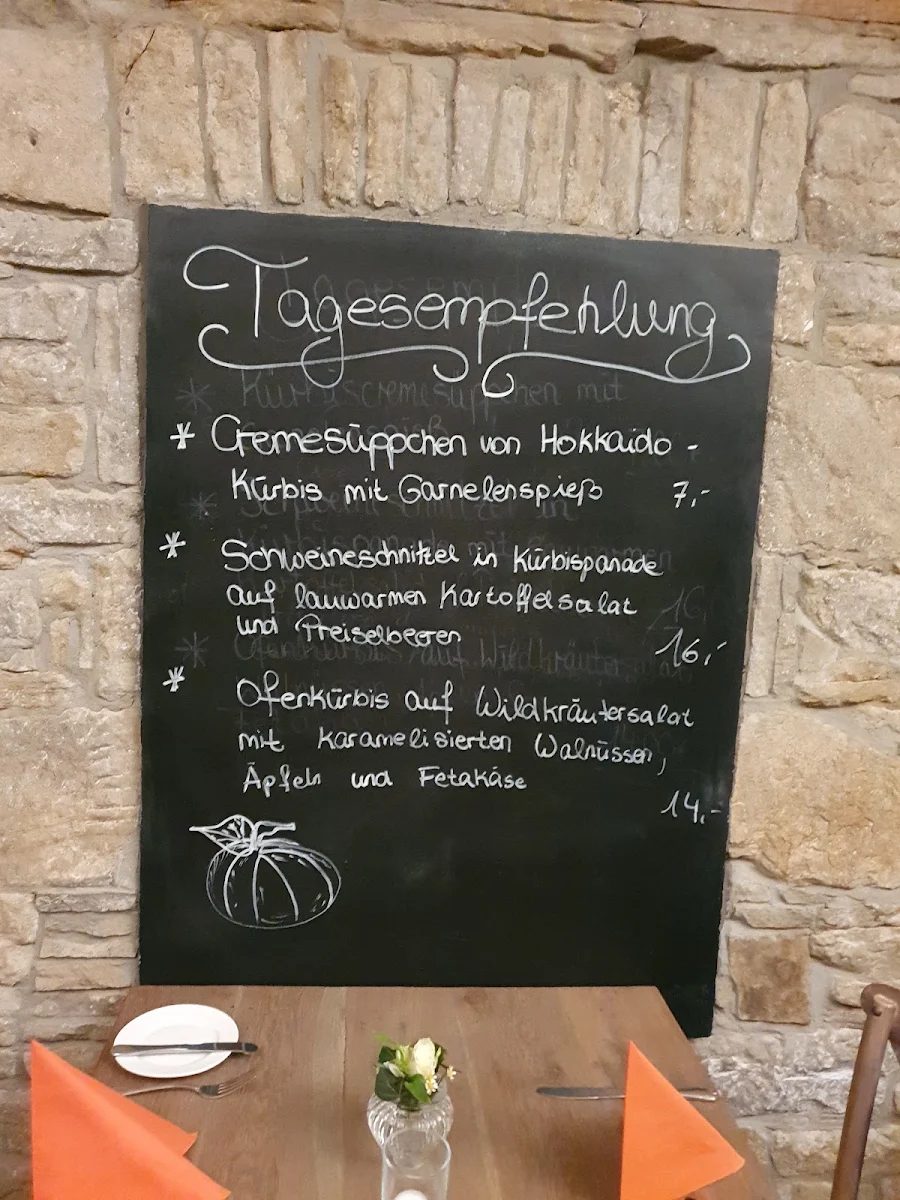 Tagesempfehlung
* Cremesüppchen von Hokkaido-
Kürbis mit Garnelenspieß 7,-
* Schweineschnitzel in Kürbispanade
auf lauwarmen Kartoffelsalat
und Preiselbeeren 16,-
* Ofenkürbis auf Wildkräutersalat
mit karamelisierten Walnüssen,
Äpfeln und Fetakäse
14,-